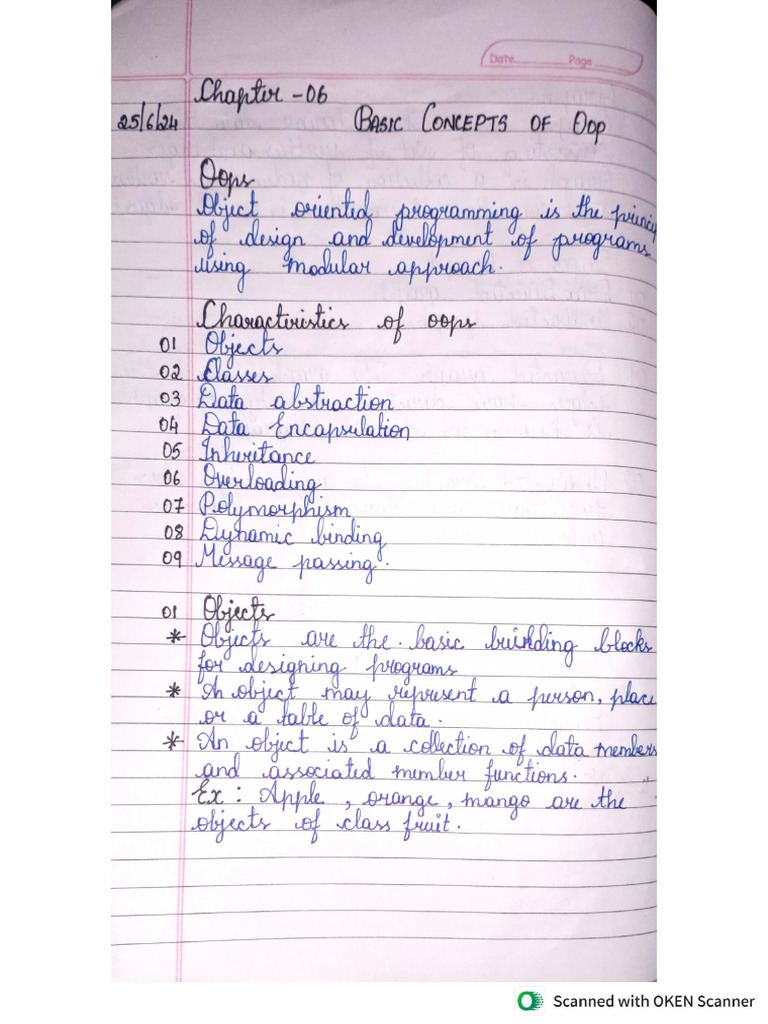 Date Page
Chapter -06
25/6/24 BASIC CONCEPTS OF OOP
Oops
Object oriented programming is the princip
of design and development of programs
using modular approach.
Characteristics of oops
01 Objects
02 Classes
03 Data abstraction
04 Data Encapsulation
05 Inheritance
06 Overloading
07 Polymorphism
08 Dynamic binding
09 Message passing.
01 Objects
* Objects are the basic building blocks
for designing programs
* An object may represent a person, place
or a table of data.
* An object is a collection of data members
and associated member functions.
Ex : Apple, orange, mango are the
objects of class fruit.
Scanned with OKEN Scanner